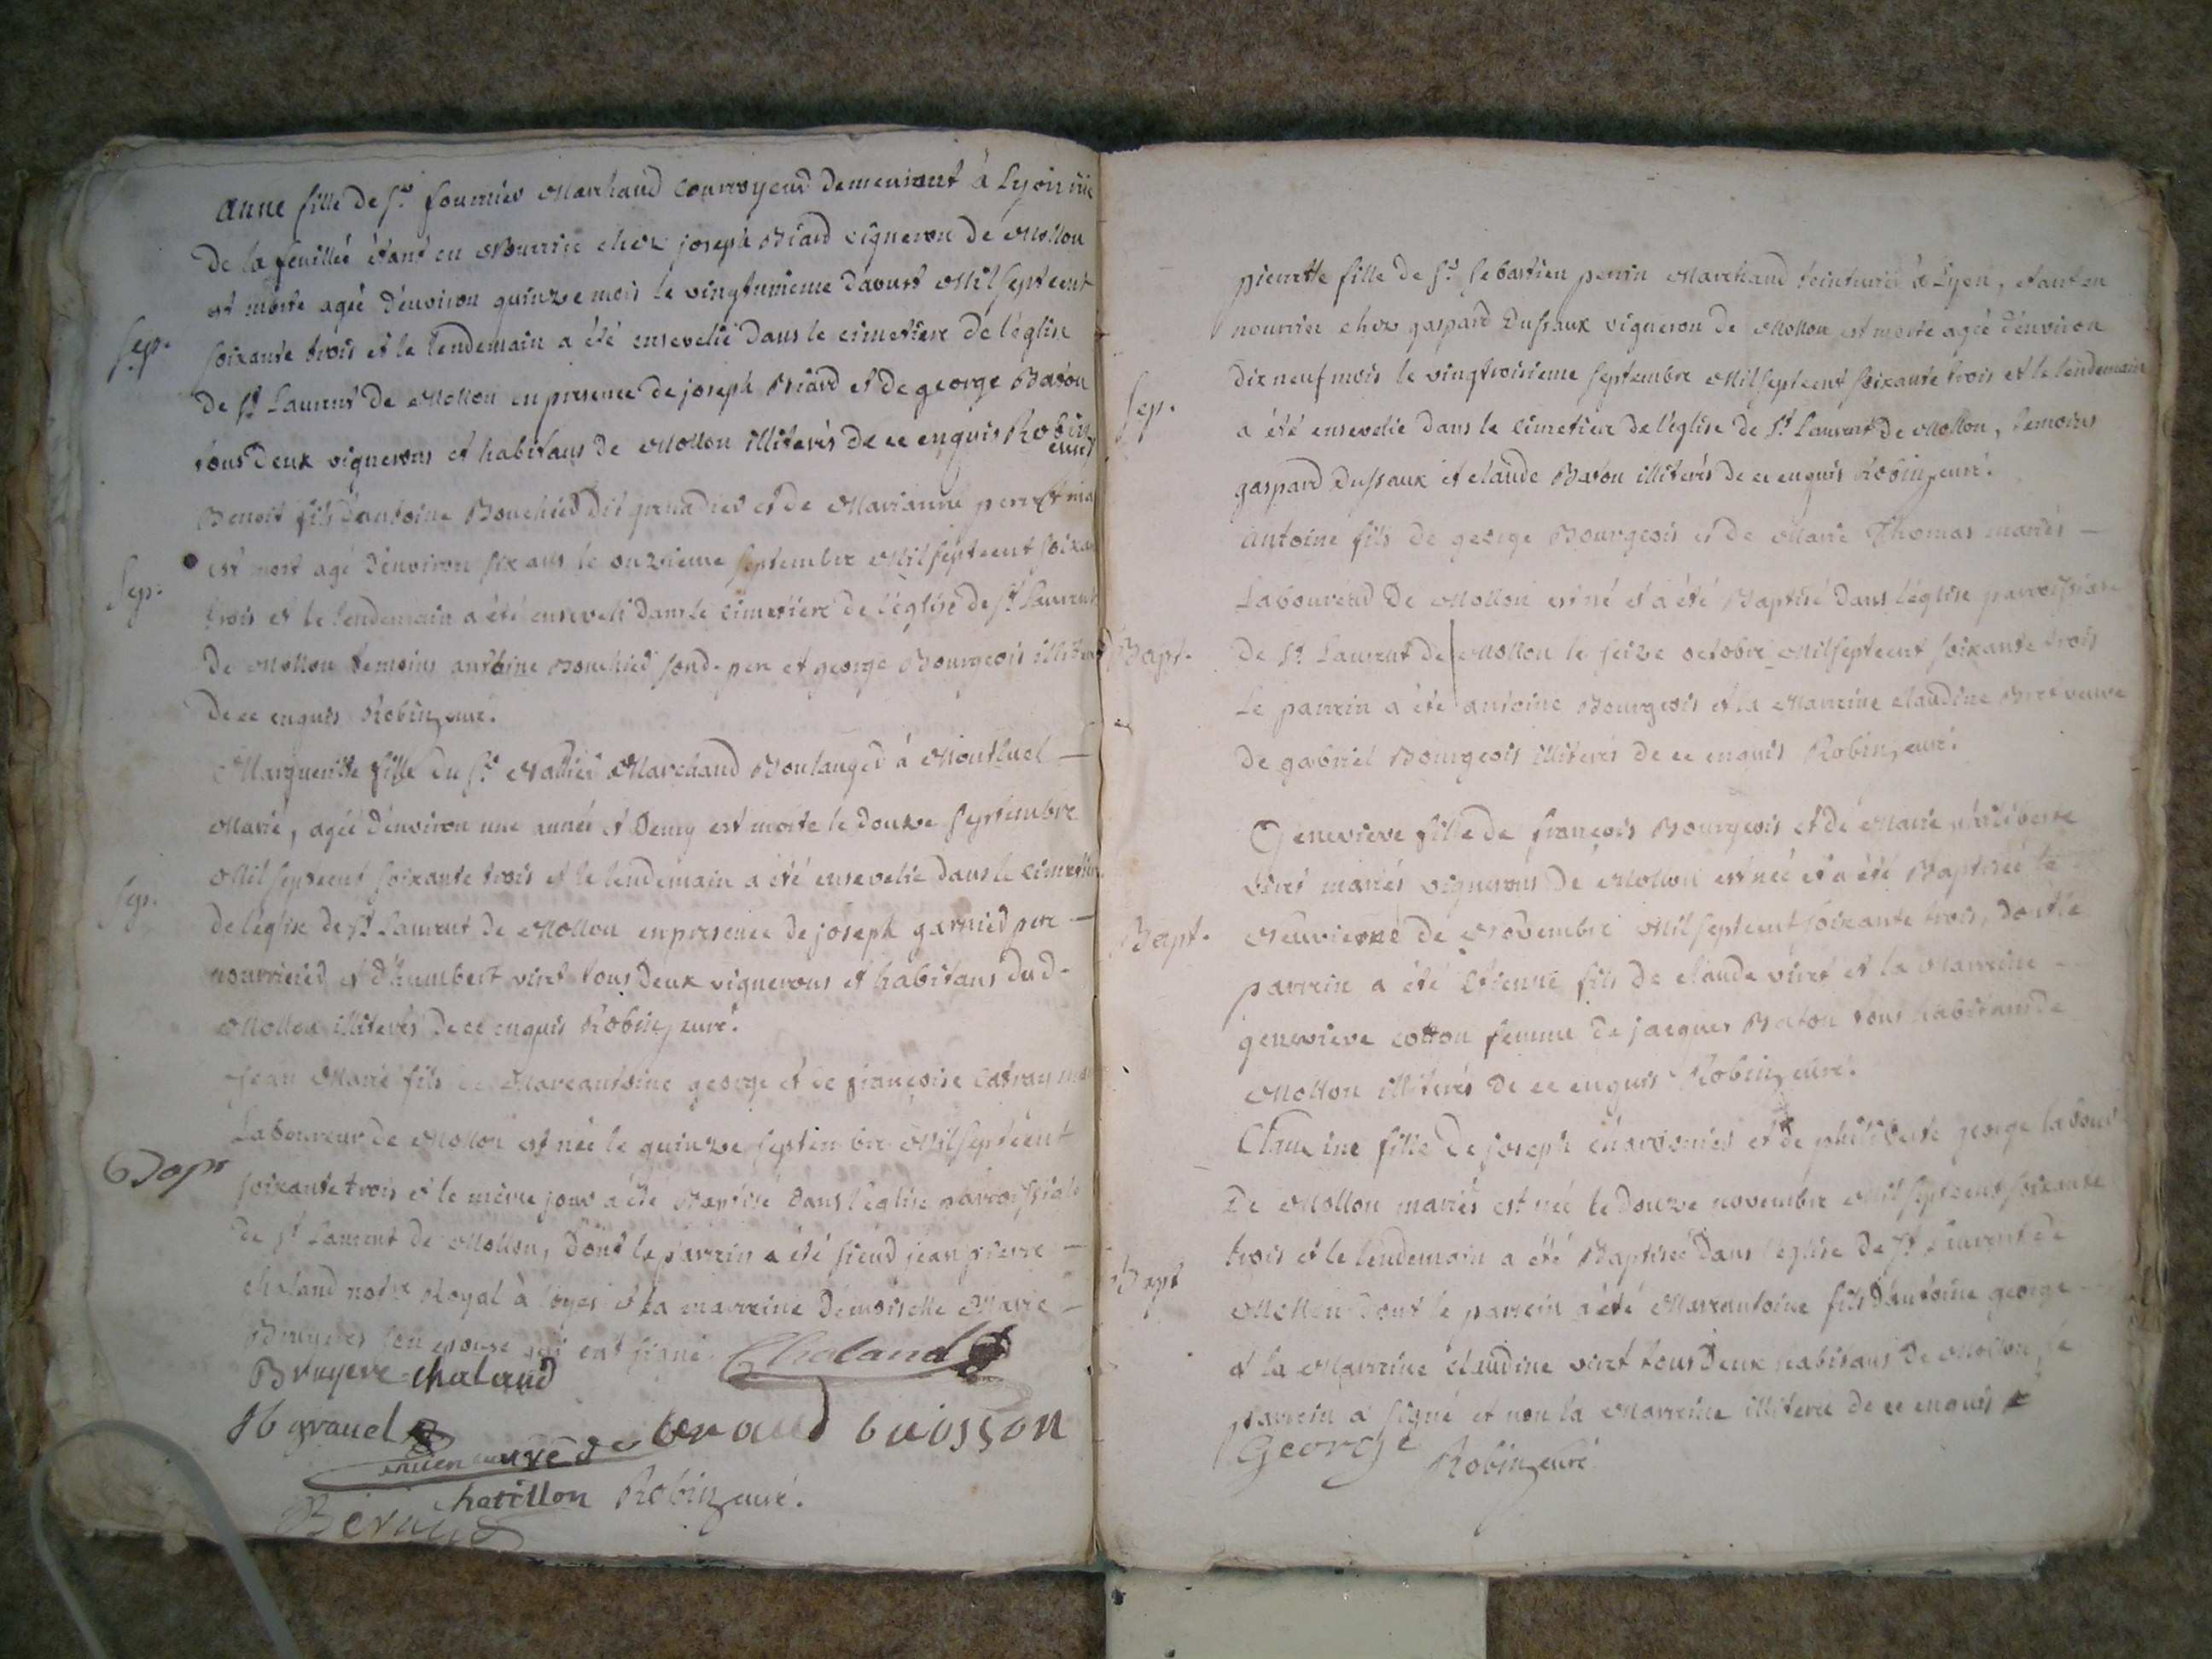 Anne fille de Sr. fournier Marchand Courroyeur demeurant à Lyon rüe
de la feuillée étant en Nourrice chez joseph Biard vigneron de Mollon
est morte agée d'environ quinze mois le vingtunieme daoust Mil septcent
Sep. soixante trois et le lendemain a été ensevelie dans le cimetiere de l'église
de St. Laurent de Mollon en presence de joseph Biard et de george Baton
tous deux vignerons et habitans de Mollon illiterés de ce enquis Robin,
curé
Benoit fils d'antoine Bouchier dit grenadier et de Marianne perret
est mort agé d'environ six ans le onzieme septembre Mil septcent soixan
Sep. trois et le lendemain a été enseveli dans le cimetiere de l'église de St. Laurent
de Mollon temoins antoine Bouchier sond. pere et george Bourgeois
de ce enquis Robin, curé.
Marguerite fille du Sr. Marchand Boulanger à Montluel
Marié, agée d'environ une année et Demy est morte le douze septembre
Mil septcent soixante trois et le lendemain a été ensevelie dans le cimetiere
Sep. de l'église de St. Laurent de Mollon en presence de joseph garnier pere
nourricier et d'humbert viret tous deux vignerons et habitans dud.
Mollon illiterés de ce enquis Robin, curé.
jean Marie fils de Marcantoine george et de françoise
Laboureur de Mollon est née le quinze septembre Mil septcent
Bapt soixante trois et le même jour a été Baptisé dans l'église parroissiale
de St. Laurent de Mollon, dont le parrein a été sieur jean pierre
chaland notre Royal à loyes et la marreine demoiselle Marie
Bruyeres son epouse qui ont signé. Chaland
Bruyere chaland
graud
ancien curé de beraud buisson
chatillon Robin, curé.
Beraud
pierrette fille de Sr. sebastien perrin Marchand teinturier à Lyon, etant en
nourrice chez gaspard Dussaux vigneron de Mollon est morte agée d'environ
dix neuf mois le vingtroisieme septembre Mil septcent soixante trois et le lendemain
Sep. a été ensevelie dans le cimetiere de l'église de St. Laurent de Mollon, temoins
gaspard Dussaux et claude Baton illiterés de ce enquis Robin, curé.
Antoine fils de george Bourgeois et de Marie Thomas mariés
Laboureur de Mollon est né et a été Baptisé dans l'église parroissiale
Bapt. de St. Laurent de Mollon le seize octobre Mil septcent soixante trois
Le parrein a été antoine Bourgeois et la Marreine claudine veuve
de gabriel Bourgeois illiterés de ce enquis Robin, curé.
Genevieve fille de françois Bourgeois et de Marie philiberte
viret mariés vignerons de Mollon est née et a été Baptisée le
Bapt. Neuvieme de Novembre Mil septcent soixante trois, dont le
parrein a été Etienne fils de claude viret et la Marreine
genevieve cotton femme de jacques Baton tous habitans de
Mollon illiterés de ce enquis Robin, curé.
Claudine fille de joseph et de philiberte george
De Mollon mariés est née le douze novembre Mil septcent soixante
trois et le lendemain a été Baptisée dans l'église de St. Laurent de
Bapt Mollon dont le parrein a été Marcantoine fils d'antoine george
et la Marreine claudine viret tous deux habitans de Mollon, le
parrein a signé et non la Marreine illiterée de ce enquis
George Robin, curé